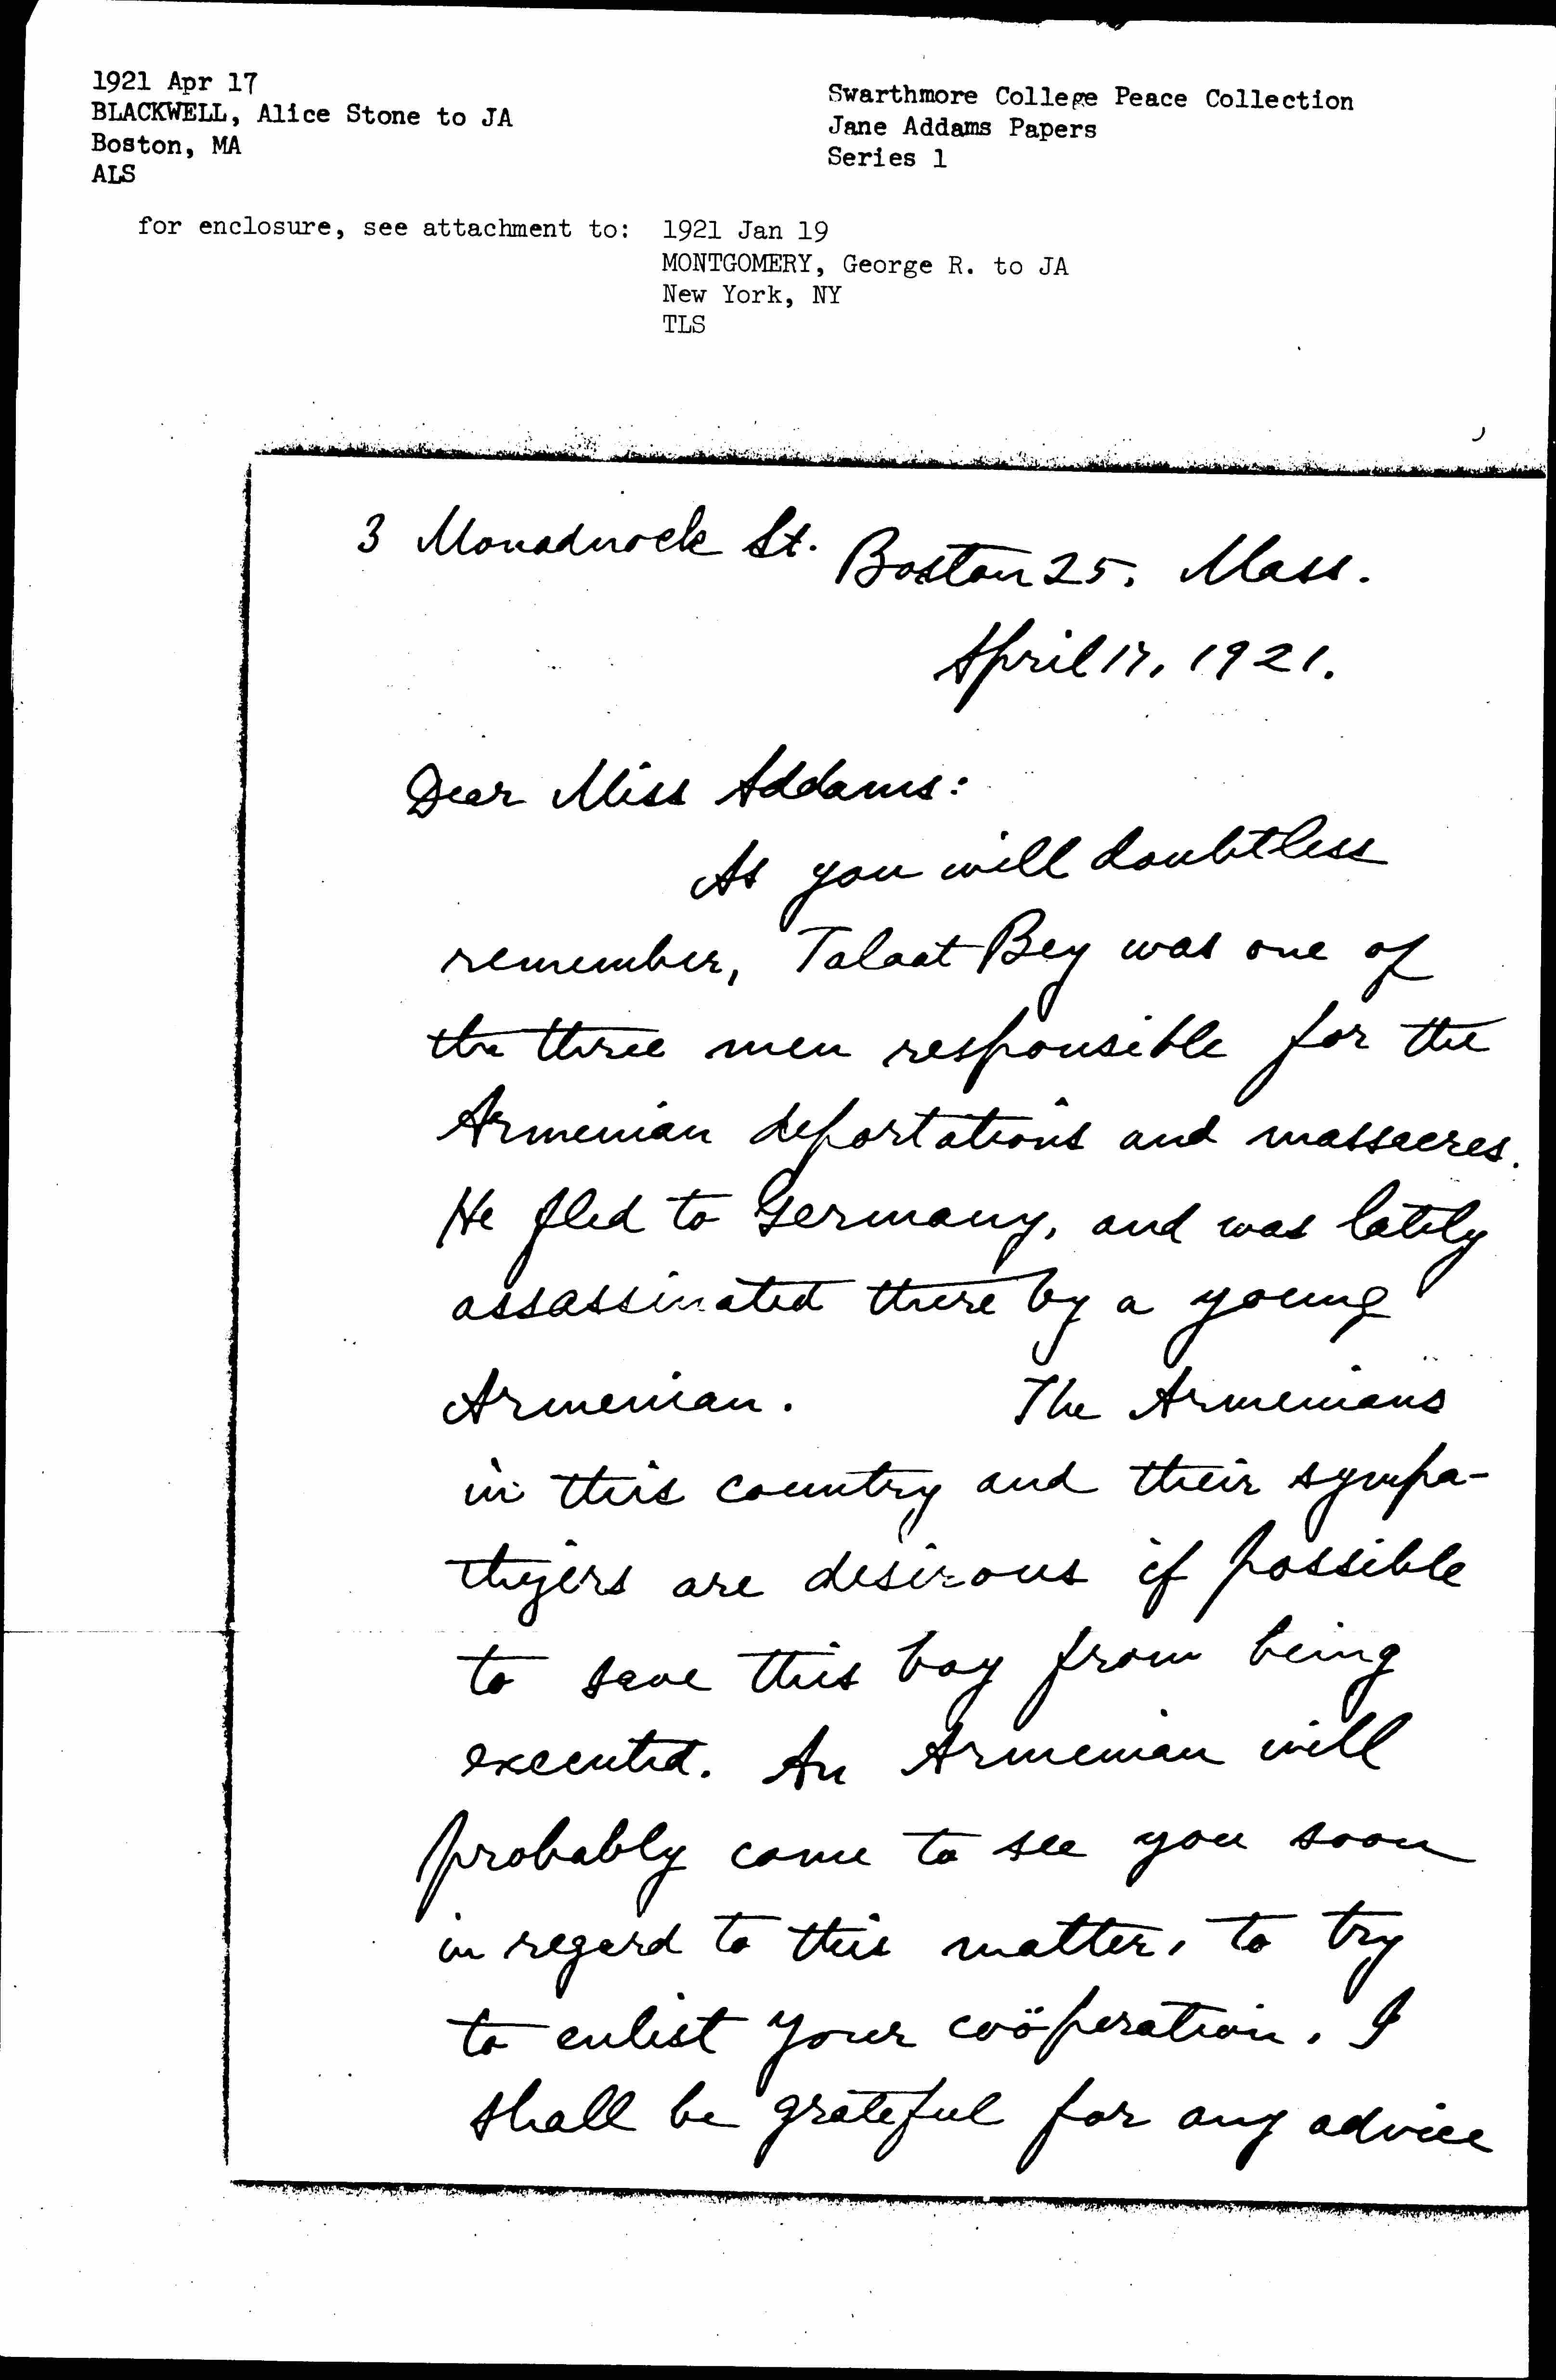 1921 Apr 17
BLACKWELL, Alice Stone to JA
Boston, MA
ALS
Swarthmore College Peace Collection
Jane Addams Papers
Series 1
for enclosure, see attachment to: 1921 Jan 19
MONTGOMERY, George R. to JA
New York, NY
TLS
3 Monadnock St.
Boston 25, Mass.
April 17, 1921.
Dear Miss Addams:
As you will doubtless
remember, Talaat Bey was one of
the three men responsible for the
Armenian deportations and massacres.
He fled to Germany, and was lately
assassinated there by a young
Armenian. The Armenians
in this country and their sympa-
thizers are desirous if possible
to save this boy from being
executed. An Armenian will
probably come to see you soon
in regard to this matter, to try
to enlist your coöperation. I
shall be grateful for any advice